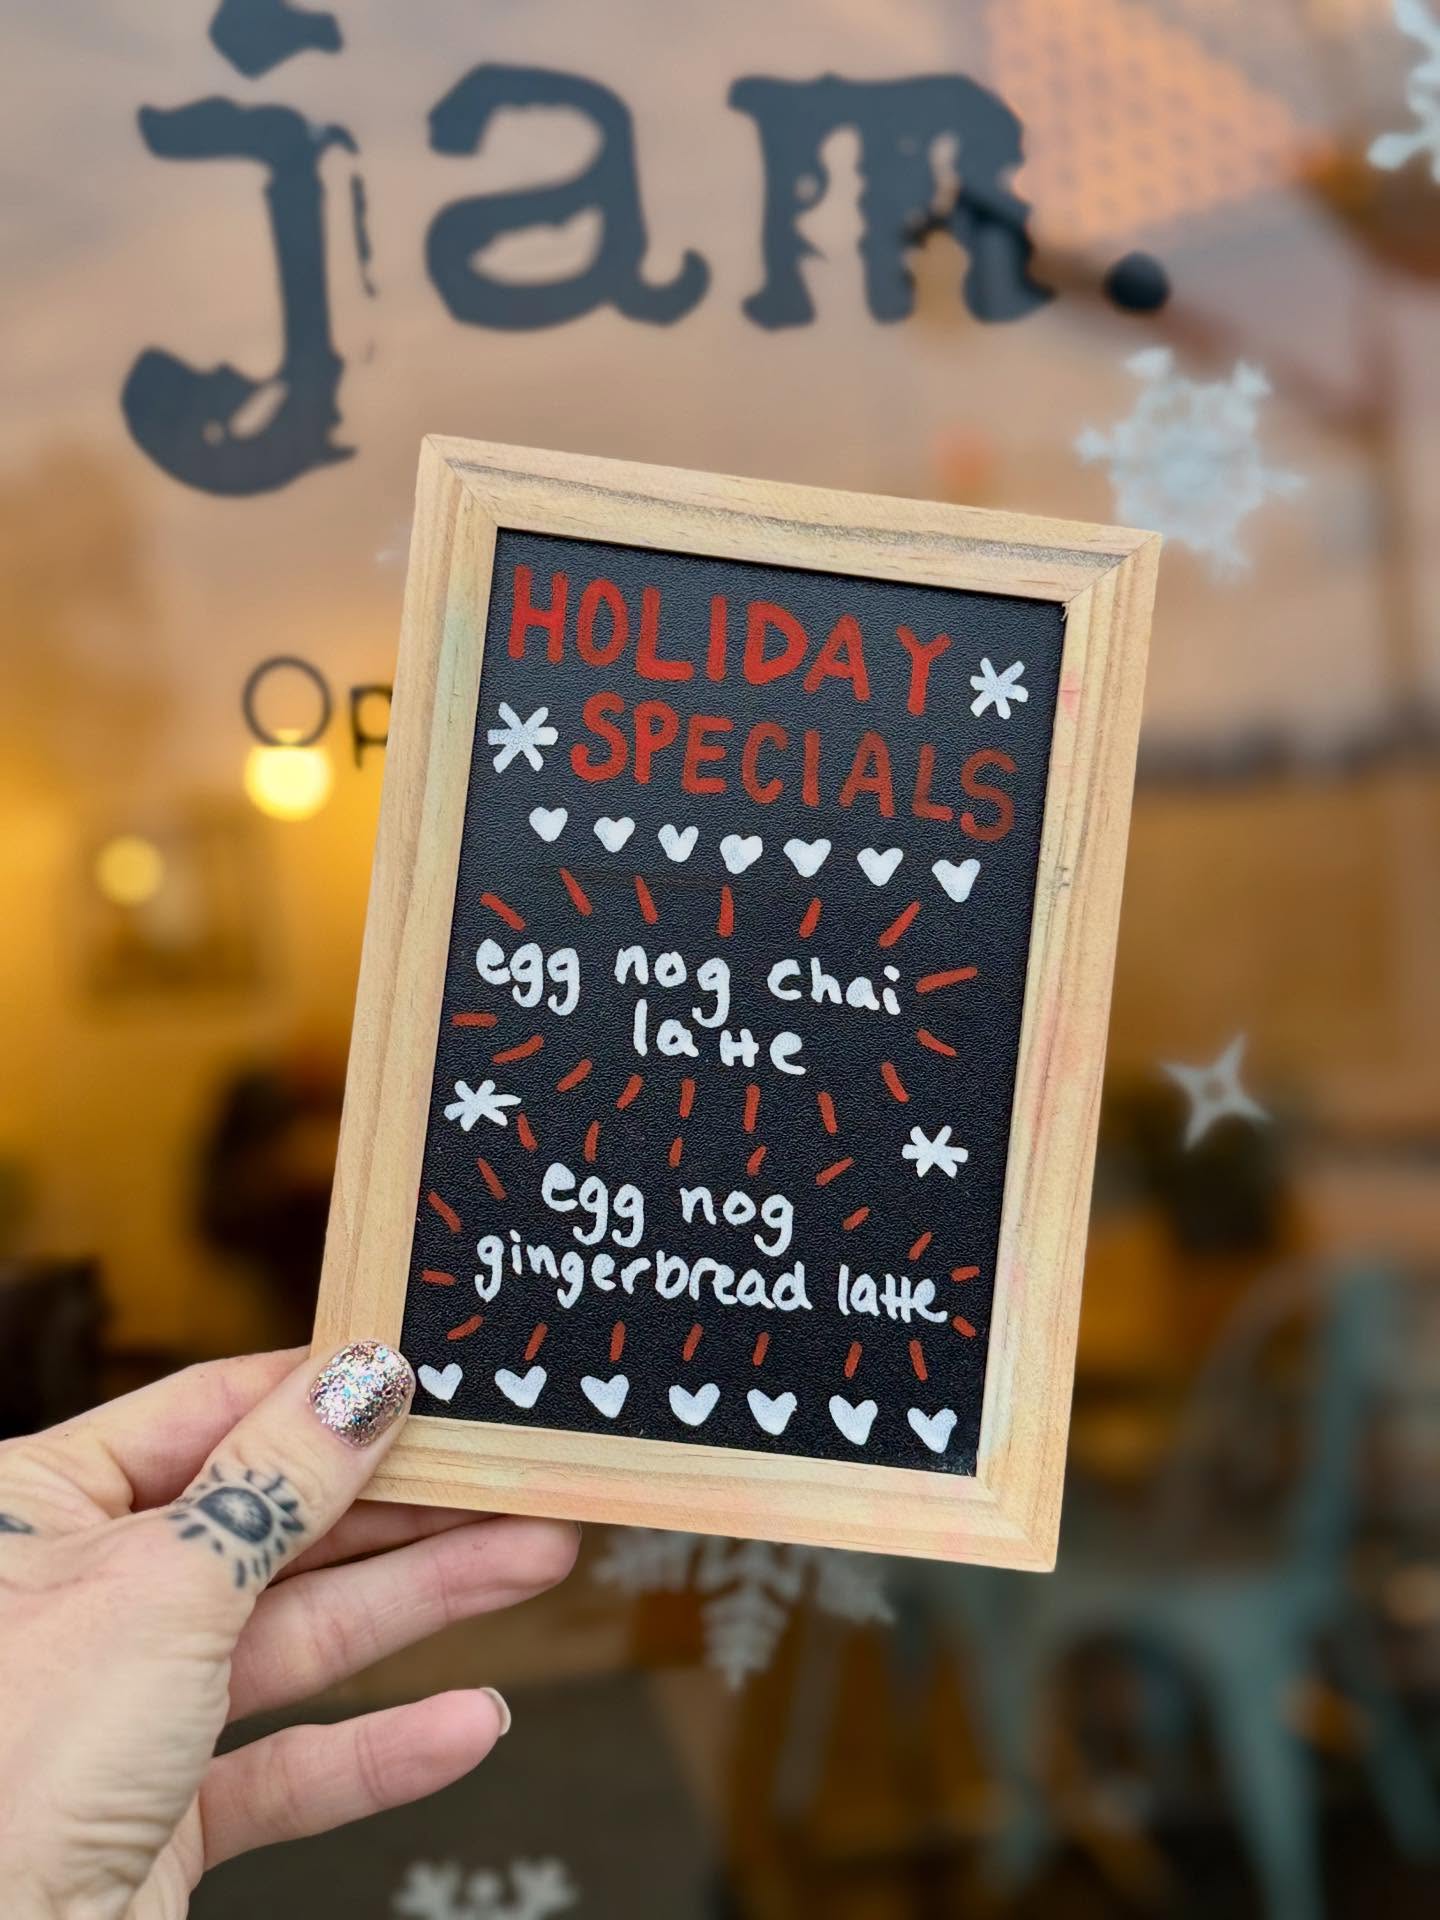 jam.
Op
HOLIDAY
SPECIALS
egg nog chai
latte
egg nog
gingerbread latte